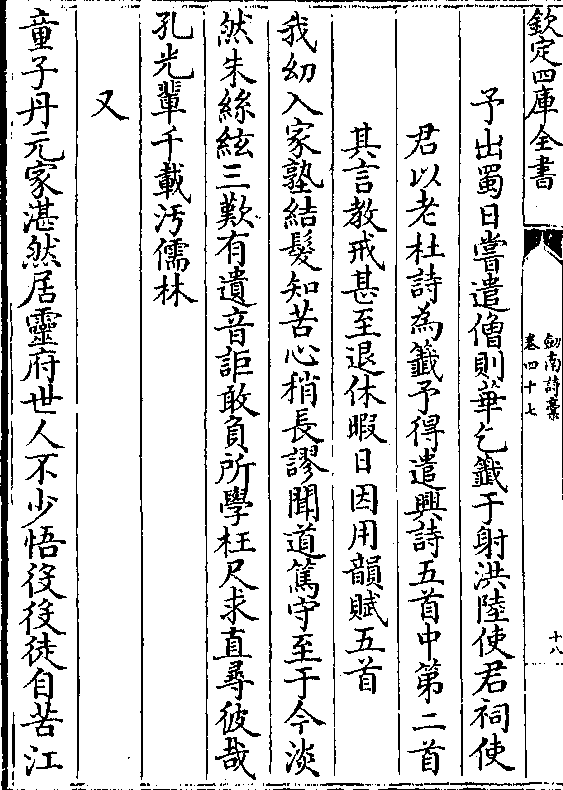 欽定四庫全書
劍南詩藁
卷四十七
十八
予出蜀日嘗遣僧則華乞籤于射洪陸使君祠使
君以老杜詩為籤予得遣興詩五首中第二首
其言教戒甚至退休暇日因用韻賦五首
我幼入家塾結髮知苦心稍長謬聞道篤守至于今淡
然朱絲絃三歎有遺音詎敢負所學枉尺求直尋彼哉
孔光輩千載汚儒林
又
童子丹元家湛然居靈府世人不少悟役役徒自苦江